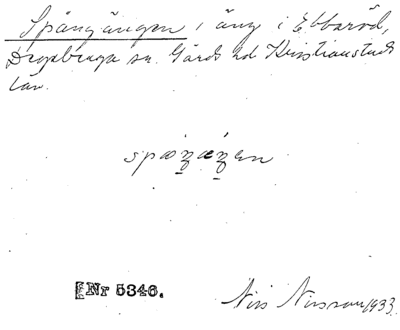 Spångängen i äng i Ebbaröd,
Degeberga sn. Gärds hd Kristianstads
län.
spaŋæŋen
[Nr 5346.
Nils Nilsson 1933